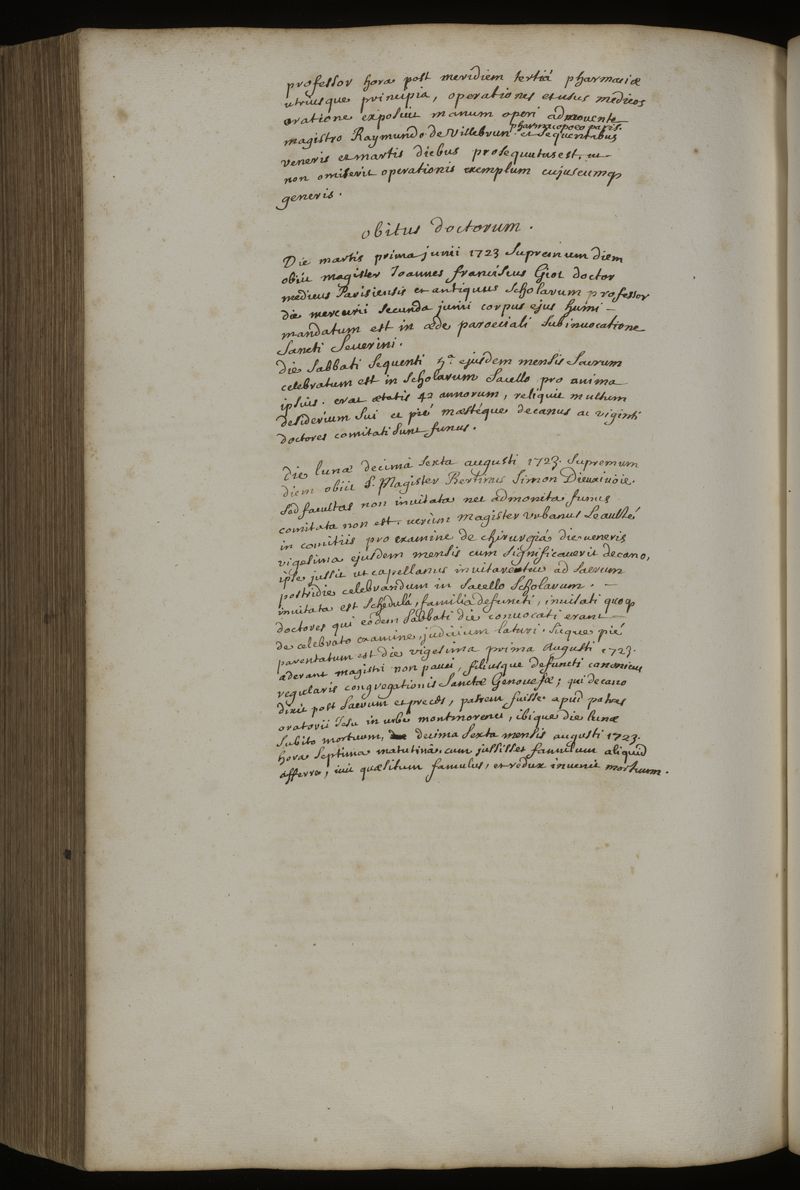 professor hora post meridiem tertiâ pharmaciæ
utriusque principia, operationes et usus medicos
oratione exposuit manum operi admovente
magistro Raymundo de Villebrun pharmacopœo paris. et sequentibus
veneris et martis diebus prosequutus est, ut
non omiserit operationis exemplum cujuscumq
generis.
obitus doctorum.
Die martis prima junii 1723 supremum diem
obiit magister Joannes franciscus Giot doctor
medicus Parisiensis et antiquus scholarum professor
die mercurii secunda junii corpus ejus humi
mandatum est in æde parœciali sub invocatione
Sancti Severini.
die sabbati sequenti 5ª ejusdem mensis sacrum
celebratum est in scholarum sacello pro anima
ipsius. erat ætatis 42 annorum, reliquit multum
desiderium sui et piè mœstéque decanus ac viginti
doctores comitati sunt funus.
Die lunæ decimâ sexta augusti 1723. supremum
diem obiit S. Magister Bertinus Simon Dieuxivoie.
sed facultas non invitata nec admonita funus
comitata non est. verùm magister urbanus Leaulté
in comitiis pro examine de chirurgia die veneris
vigesima ejusdem mensis cum significaverit decano,
ipse jussit ut capellanus invitaretur ad sacrum
postridie celebrandum in sacello scholarum.
invitata est schedulâ, familia defuncti, invitati quoq
doctores qui eodem sabbati die convocati erant
de celebrato examine, judicium laturi. sicque piè
parentatum est die vigesima prima augusti 1723.
aderant magistri non pauci, filiusque defuncti canonicus
regularis congregationis Sanctæ Genovefæ; qui decano
dixit post sacrum et preces, patrem fuisse apud patres
oratorii Jesu in urbe montmorenci, ibique die lunæ
subito mortuum, decima sexta mensis augusti 1723.
hora septima matutina. cum jussisset famulum aliquid
afferre, ivit quæsitum famulus, et redux invenit mortuum.